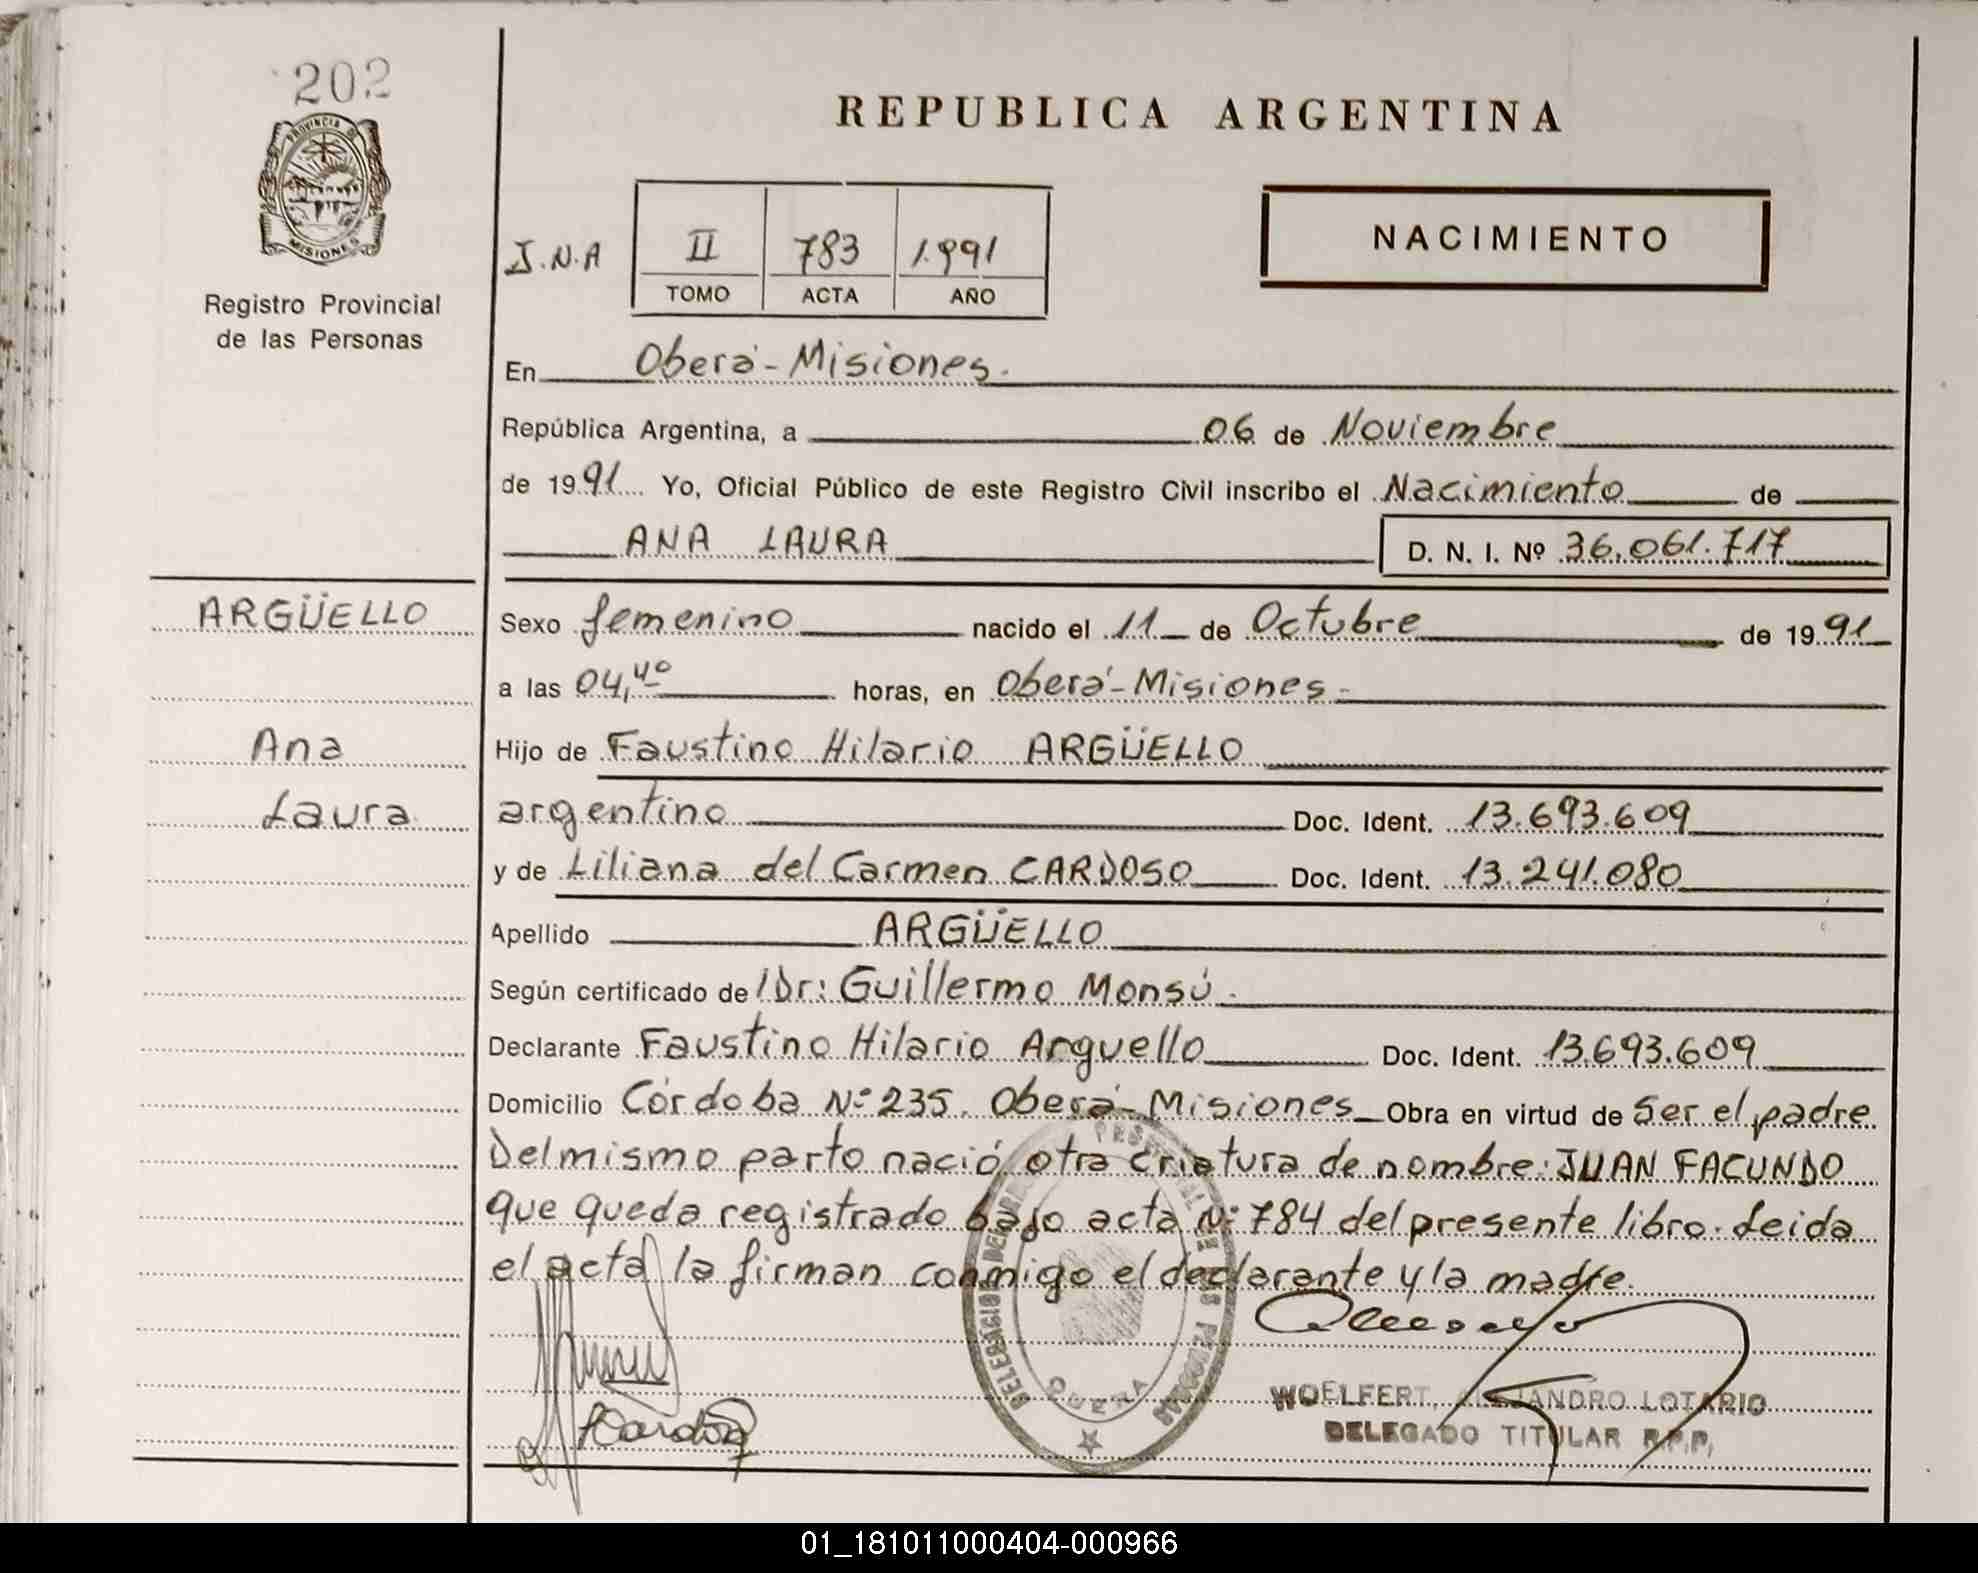 202
PROVINCIA DE
MISIONES
Registro Provincial
de las Personas
REPUBLICA ARGENTINA
NACIMIENTO
J.N.A II 783 1.991
TOMO ACTA AÑO
En Oberá-Misiones.
República Argentina, a 06 de Noviembre
de 1991 Yo, Oficial Público de este Registro Civil inscribo el Nacimiento de
ANA LAURA D. N. I. Nº 36.061.717
ARGÜELLO
Ana
Laura
Sexo femenino nacido el 11 de Octubre de 1991
a las 04,40 horas, en Oberá-Misiones-
Hijo de Faustino Hilario ARGÜELLO
argentino Doc. Ident. 13.693.609
y de Liliana del Carmen CARDOSO Doc. Ident. 13.241.080
Apellido ARGÜELLO
Según certificado de Dr: Guillermo Monsú.
Declarante Faustino Hilario Arguello Doc. Ident. 13.693.609
Domicilio Córdoba Nº 235. Oberá-Misiones Obra en virtud de Ser el padre
Del mismo parto nació otra criatura de nombre: JUAN FACUNDO
que queda registrado bajo acta Nº 784 del presente libro. Leida
el acta la firman conmigo el declarante y la madre.
OBERA
WOELFERT, ALEJANDRO LOTARIO
DELEGADO TITULAR R.P.P.
01_181011000404-000966